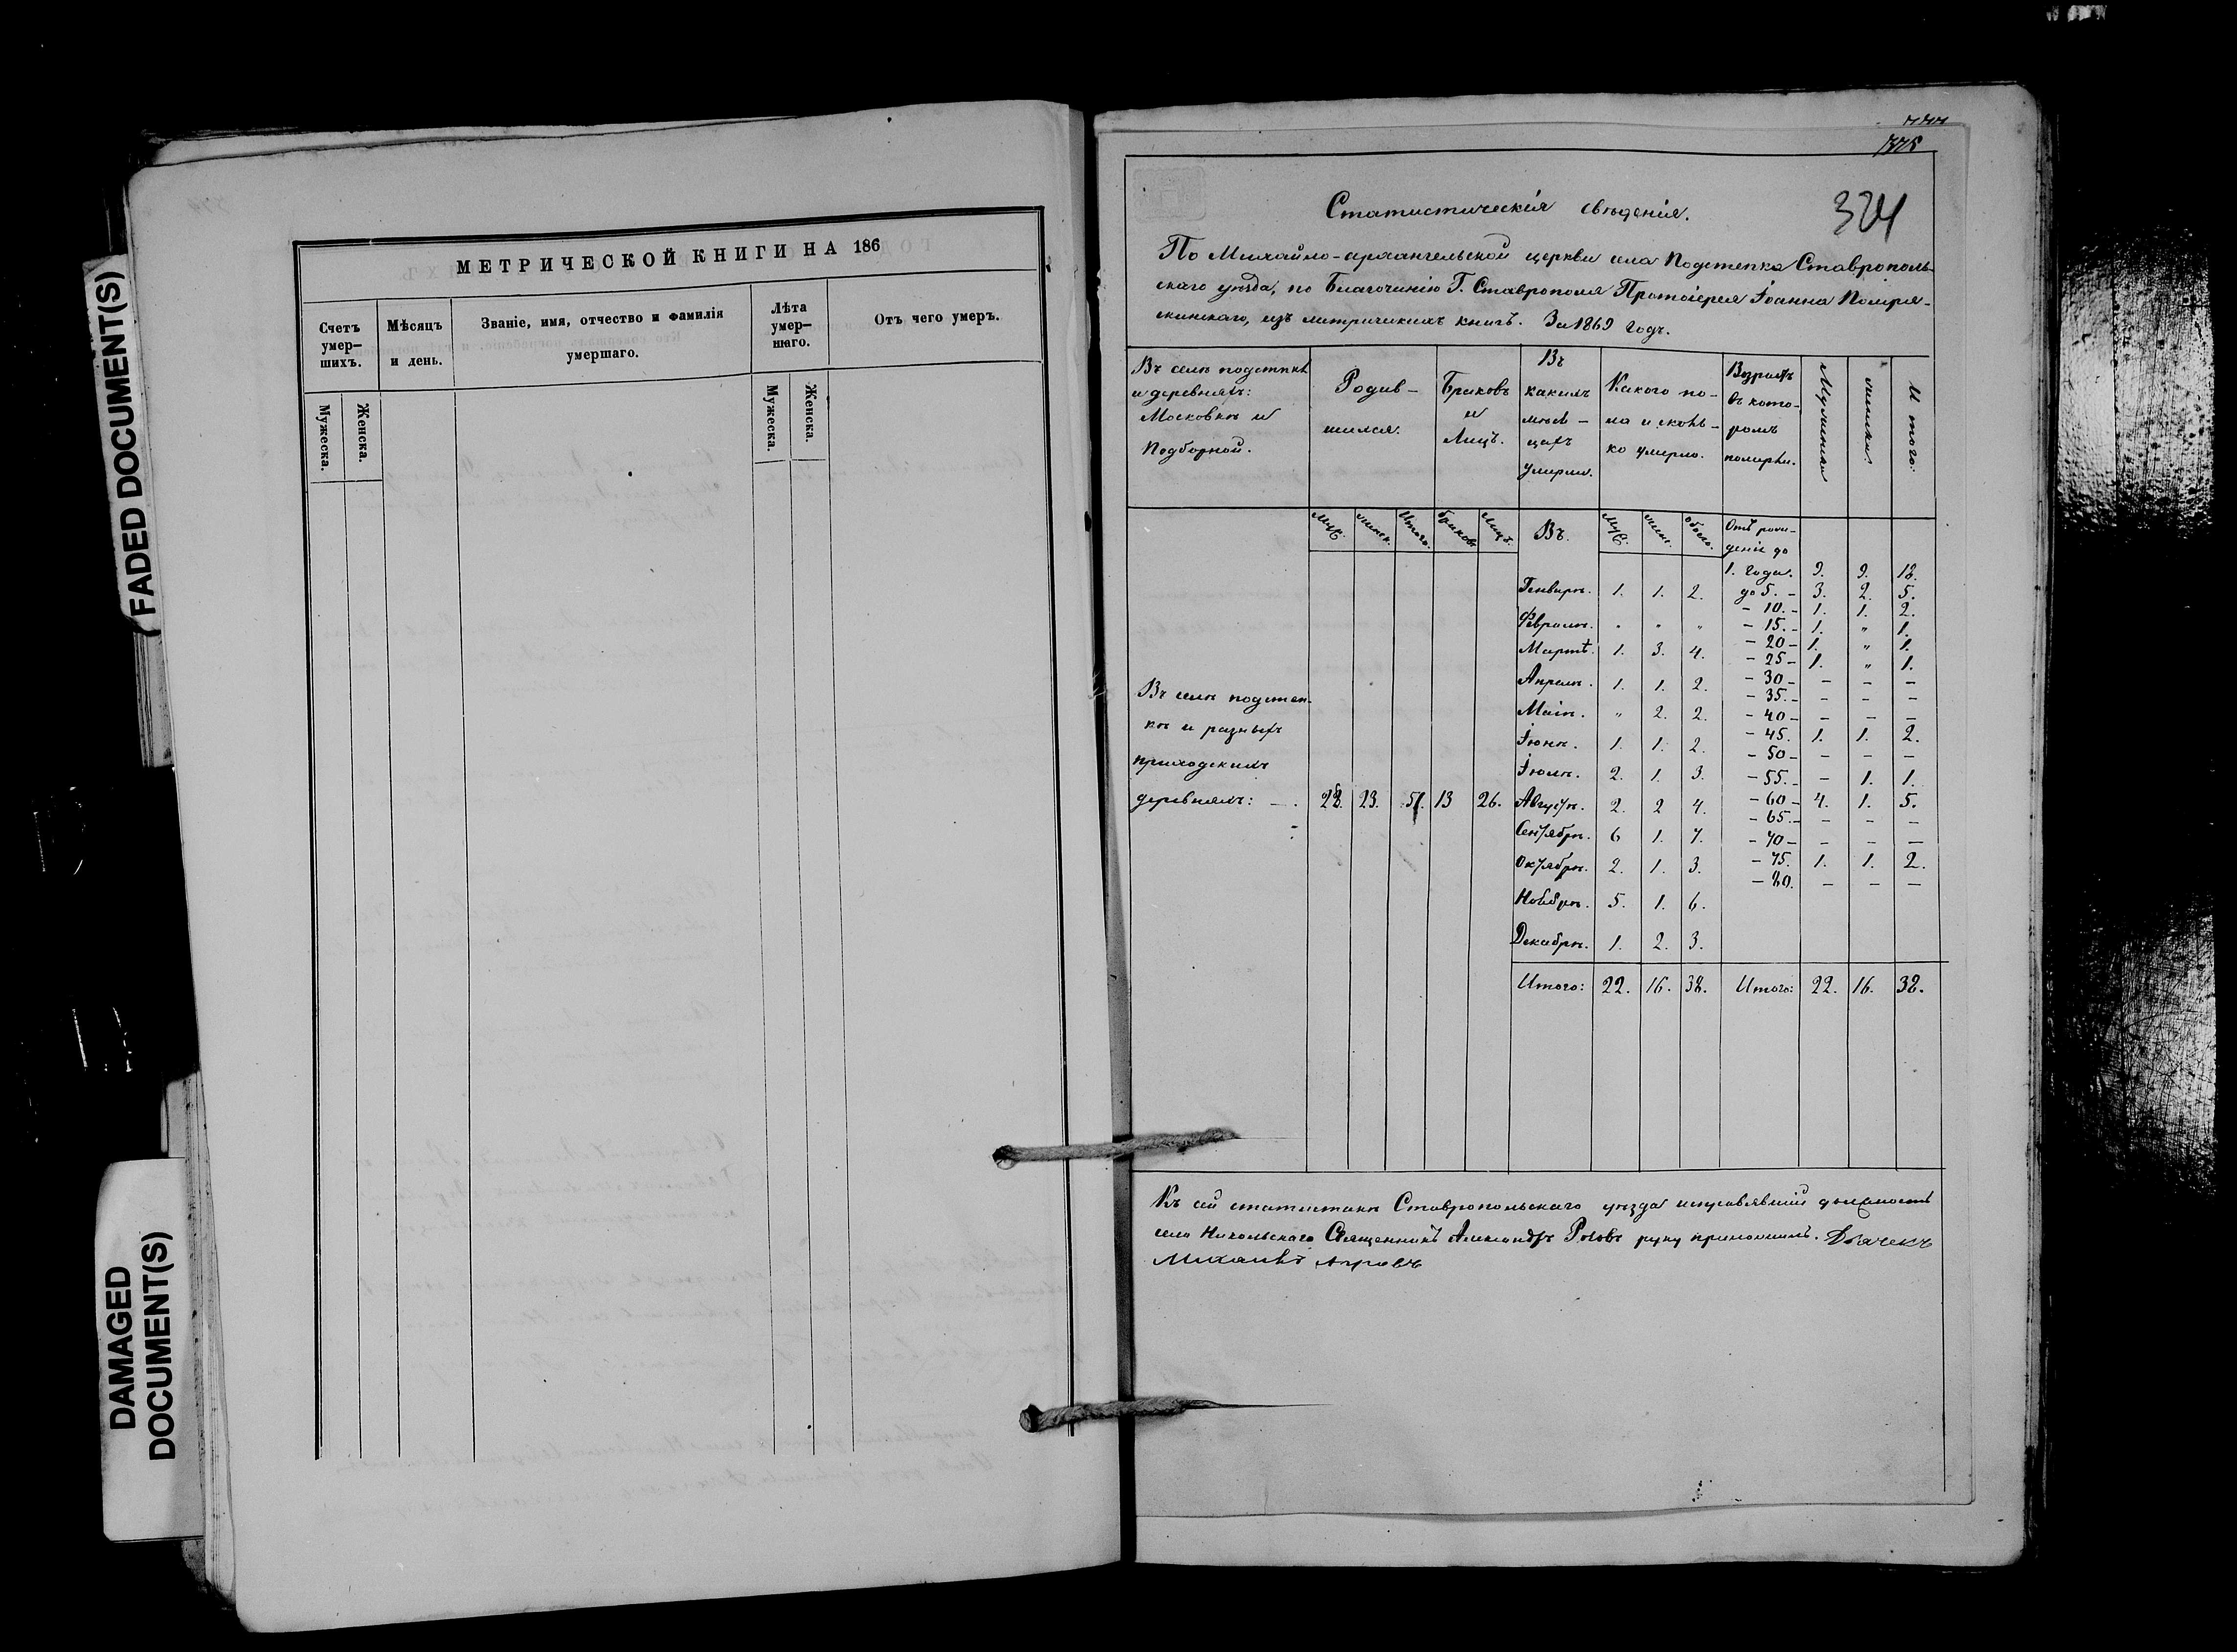 FADED DOCUMENT(S)
DAMAGED
DOCUMENT(S)
МЕТРИЧЕСКОЙ КНИГИ НА 186
Счетъ
умер-
шихъ.
Мѣсяцъ
и день.
Званіе, имя, отчество и фамилія
умершаго.
Лѣта
умер-
шаго.
Отъ чего умеръ.
Мужеска.
Женска.
Мужеска.
Женска.
324
Статистическія свѣденія.
По Михайло-архангельской церкви села Подстепка Ставрополь-
скаго уѣзда, по Благочинію Г. Ставрополя Протоіерея Іоанна
изъ метрическихъ книгъ. За 1869 годъ.
Въ селѣ подстепкѣ
и деревняхъ:
Московкѣ и
Подборной.
Родив-
шихся.
Браковъ
и
Лицъ.
Въ
какихъ
мѣся-
цахъ
умерли.
Какого по-
ла и сколь-
ко умерло.
Возрастъ
въ кото-
ромъ
померли.
Мужеска
женска
Итого:
муж. женск. Итого. браковъ лицъ. Въ. муж. женс. обоего. Отъ рож-
деніе до
1. года. 9. 9. 18.
Генварѣ. 1. 1. 2. до 5. - 3. 2. 5.
- 10. - 1. 1. 2.
Февралѣ. " " " - 15. - 1. " 1.
- 20 - 1. " 1.
Мартѣ. 1. 3. 4. - 25 - 1. " 1.
- 30 - - - -
Апрелѣ. 1. 1. 2. - 35. - - - -
Маіѣ. " 2. 2. - 40 - - - -
- 45. 1. 1. 2.
Іюнѣ. 1. 1. 2. - 50 - - - -
Іюлѣ. 2. 1. 3. - 55. - - 1. 1.
Въ селѣ подстеп-
кѣ и разныхъ
приходскихъ
деревняхъ: - . 28. 23. 51. 13 26. Августѣ. 2. 2 4. - 60 - 4. 1. 5.
- 65. - - - -
Сентябрѣ. 6 1. 7. - 70 - - - -
Октябрѣ. 2. 1. 3. - 75. 1. 1. 2.
- 80. - - -
Ноябрѣ. 5. 1. 6.
Декабрѣ. 1. 2. 3.
Итого: 22. 16. 38. Итого: 22. 16. 38.
Къ сей статистикѣ Ставропольскаго уѣзда исправлявшій должность
села Никольскаго Священникъ Александръ руку приложилъ. Дьячекъ
Михаилъ